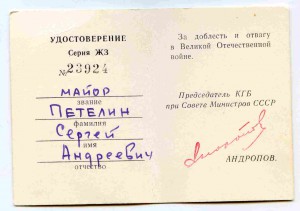 УДОСТОВЕРЕНИЕ
Серия ЖЗ
№23924
майор
звание
Петелин
фамилия
Сергей
имя
Андреевич
отчество
За доблесть и отвагу
в Великой Отечественной
войне.
Председатель КГБ
при Совете Министров СССР
АНДРОПОВ.